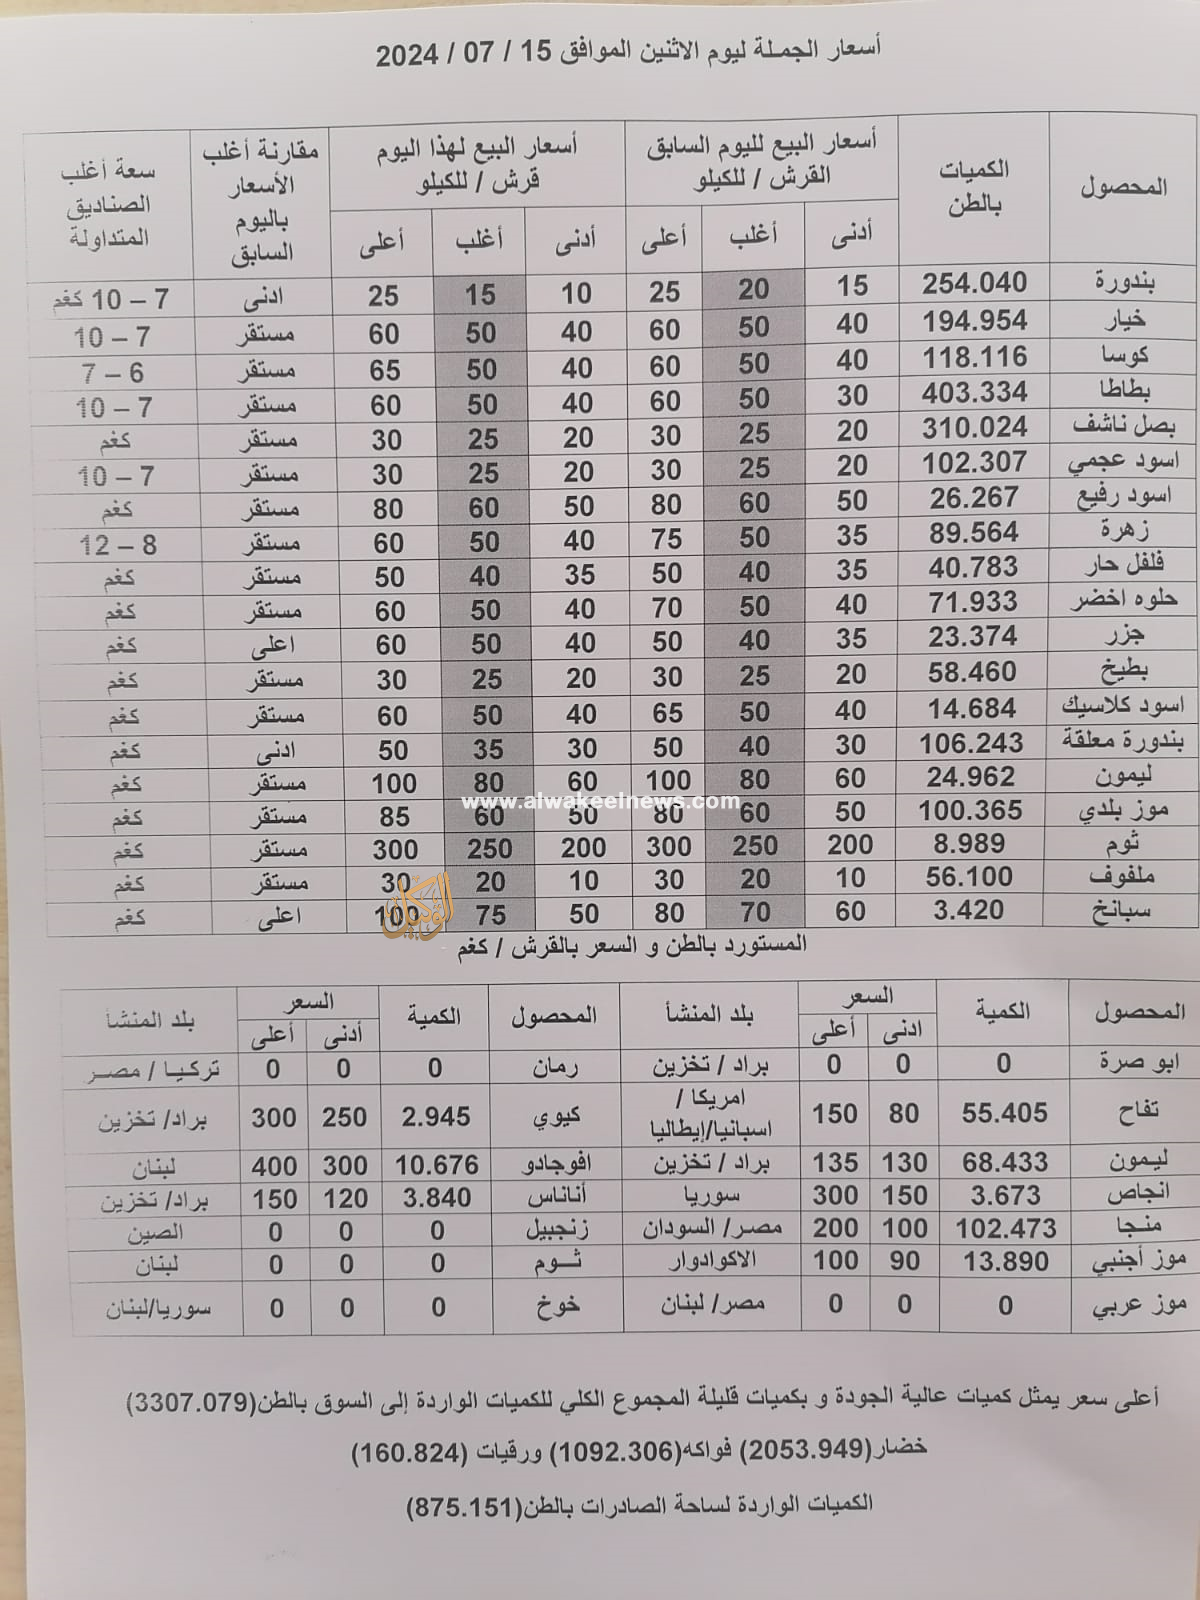 أسعار الجملة ليوم الاثنين الموافق 15 / 07 / 2024
المحصول الكميات بالطن أسعار البيع لليوم السابق القرش / للكيلو أسعار البيع لهذا اليوم قرش / للكيلو مقارنة أغلب الأسعار باليوم السابق سعة أغلب الصناديق المتداولة
أدنى أغلب أعلى أدنى أغلب أعلى
بندورة 254.040 15 20 25 10 15 25 ادنى 7 – 10 كغم
خيار 194.954 40 50 60 40 50 60 مستقر 7 – 10
كوسا 118.116 40 50 60 40 50 65 مستقر 6 – 7
بطاطا 403.334 30 50 60 40 50 60 مستقر 7 – 10
بصل ناشف 310.024 20 25 30 20 25 30 مستقر كغم
اسود عجمي 102.307 20 25 30 20 25 30 مستقر 7 – 10
اسود رفيع 26.267 50 60 80 50 60 80 مستقر كغم
زهرة 89.564 35 50 75 40 50 60 مستقر 8 – 12
فلفل حار 40.783 35 40 50 35 40 50 مستقر كغم
حلوه اخضر 71.933 40 50 70 40 50 60 مستقر كغم
جزر 23.374 35 40 50 40 50 60 اعلى كغم
بطيخ 58.460 20 25 30 20 25 30 مستقر كغم
اسود كلاسيك 14.684 40 50 65 40 50 60 مستقر كغم
بندورة معلقة 106.243 30 40 50 30 35 50 ادنى كغم
ليمون 24.962 60 80 100 60 80 100 مستقر كغم
www.alwakeelnews.com
موز بلدي 100.365 50 60 80 50 60 85 مستقر كغم
ثوم 8.989 200 250 300 200 250 300 مستقر كغم
ملفوف 56.100 10 20 30 10 20 30 مستقر كغم
الوكيل
سبانخ 3.420 60 70 80 50 75 100 اعلى كغم
المستورد بالطن و السعر بالقرش / كغم
المحصول الكمية السعر بلد المنشأ المحصول الكمية السعر بلد المنشأ
ادنى أعلى أدنى أعلى
ابو صرة 0 0 0 براد / تخزين رمان 0 0 0 تركيا / مصر
تفاح 55.405 80 150 امريكا / اسبانيا/إيطاليا كيوي 2.945 250 300 براد/ تخزين
ليمون 68.433 130 135 براد / تخزين افوجادو 10.676 300 400 لبنان
انجاص 3.673 150 300 سوريا أناناس 3.840 120 150 براد/ تخزين
منجا 102.473 100 200 مصر/ السودان زنجبيل 0 0 0 الصين
موز أجنبي 13.890 90 100 الاكوادوار ثوم 0 0 0 لبنان
موز عربي 0 0 0 مصر/ لبنان خوخ 0 0 0 سوريا/لبنان
أعلى سعر يمثل كميات عالية الجودة و بكميات قليلة المجموع الكلي للكميات الواردة إلى السوق بالطن(3307.079)
خضار(2053.949) فواكه(1092.306) ورقيات (160.824)
الكميات الواردة لساحة الصادرات بالطن(875.151)